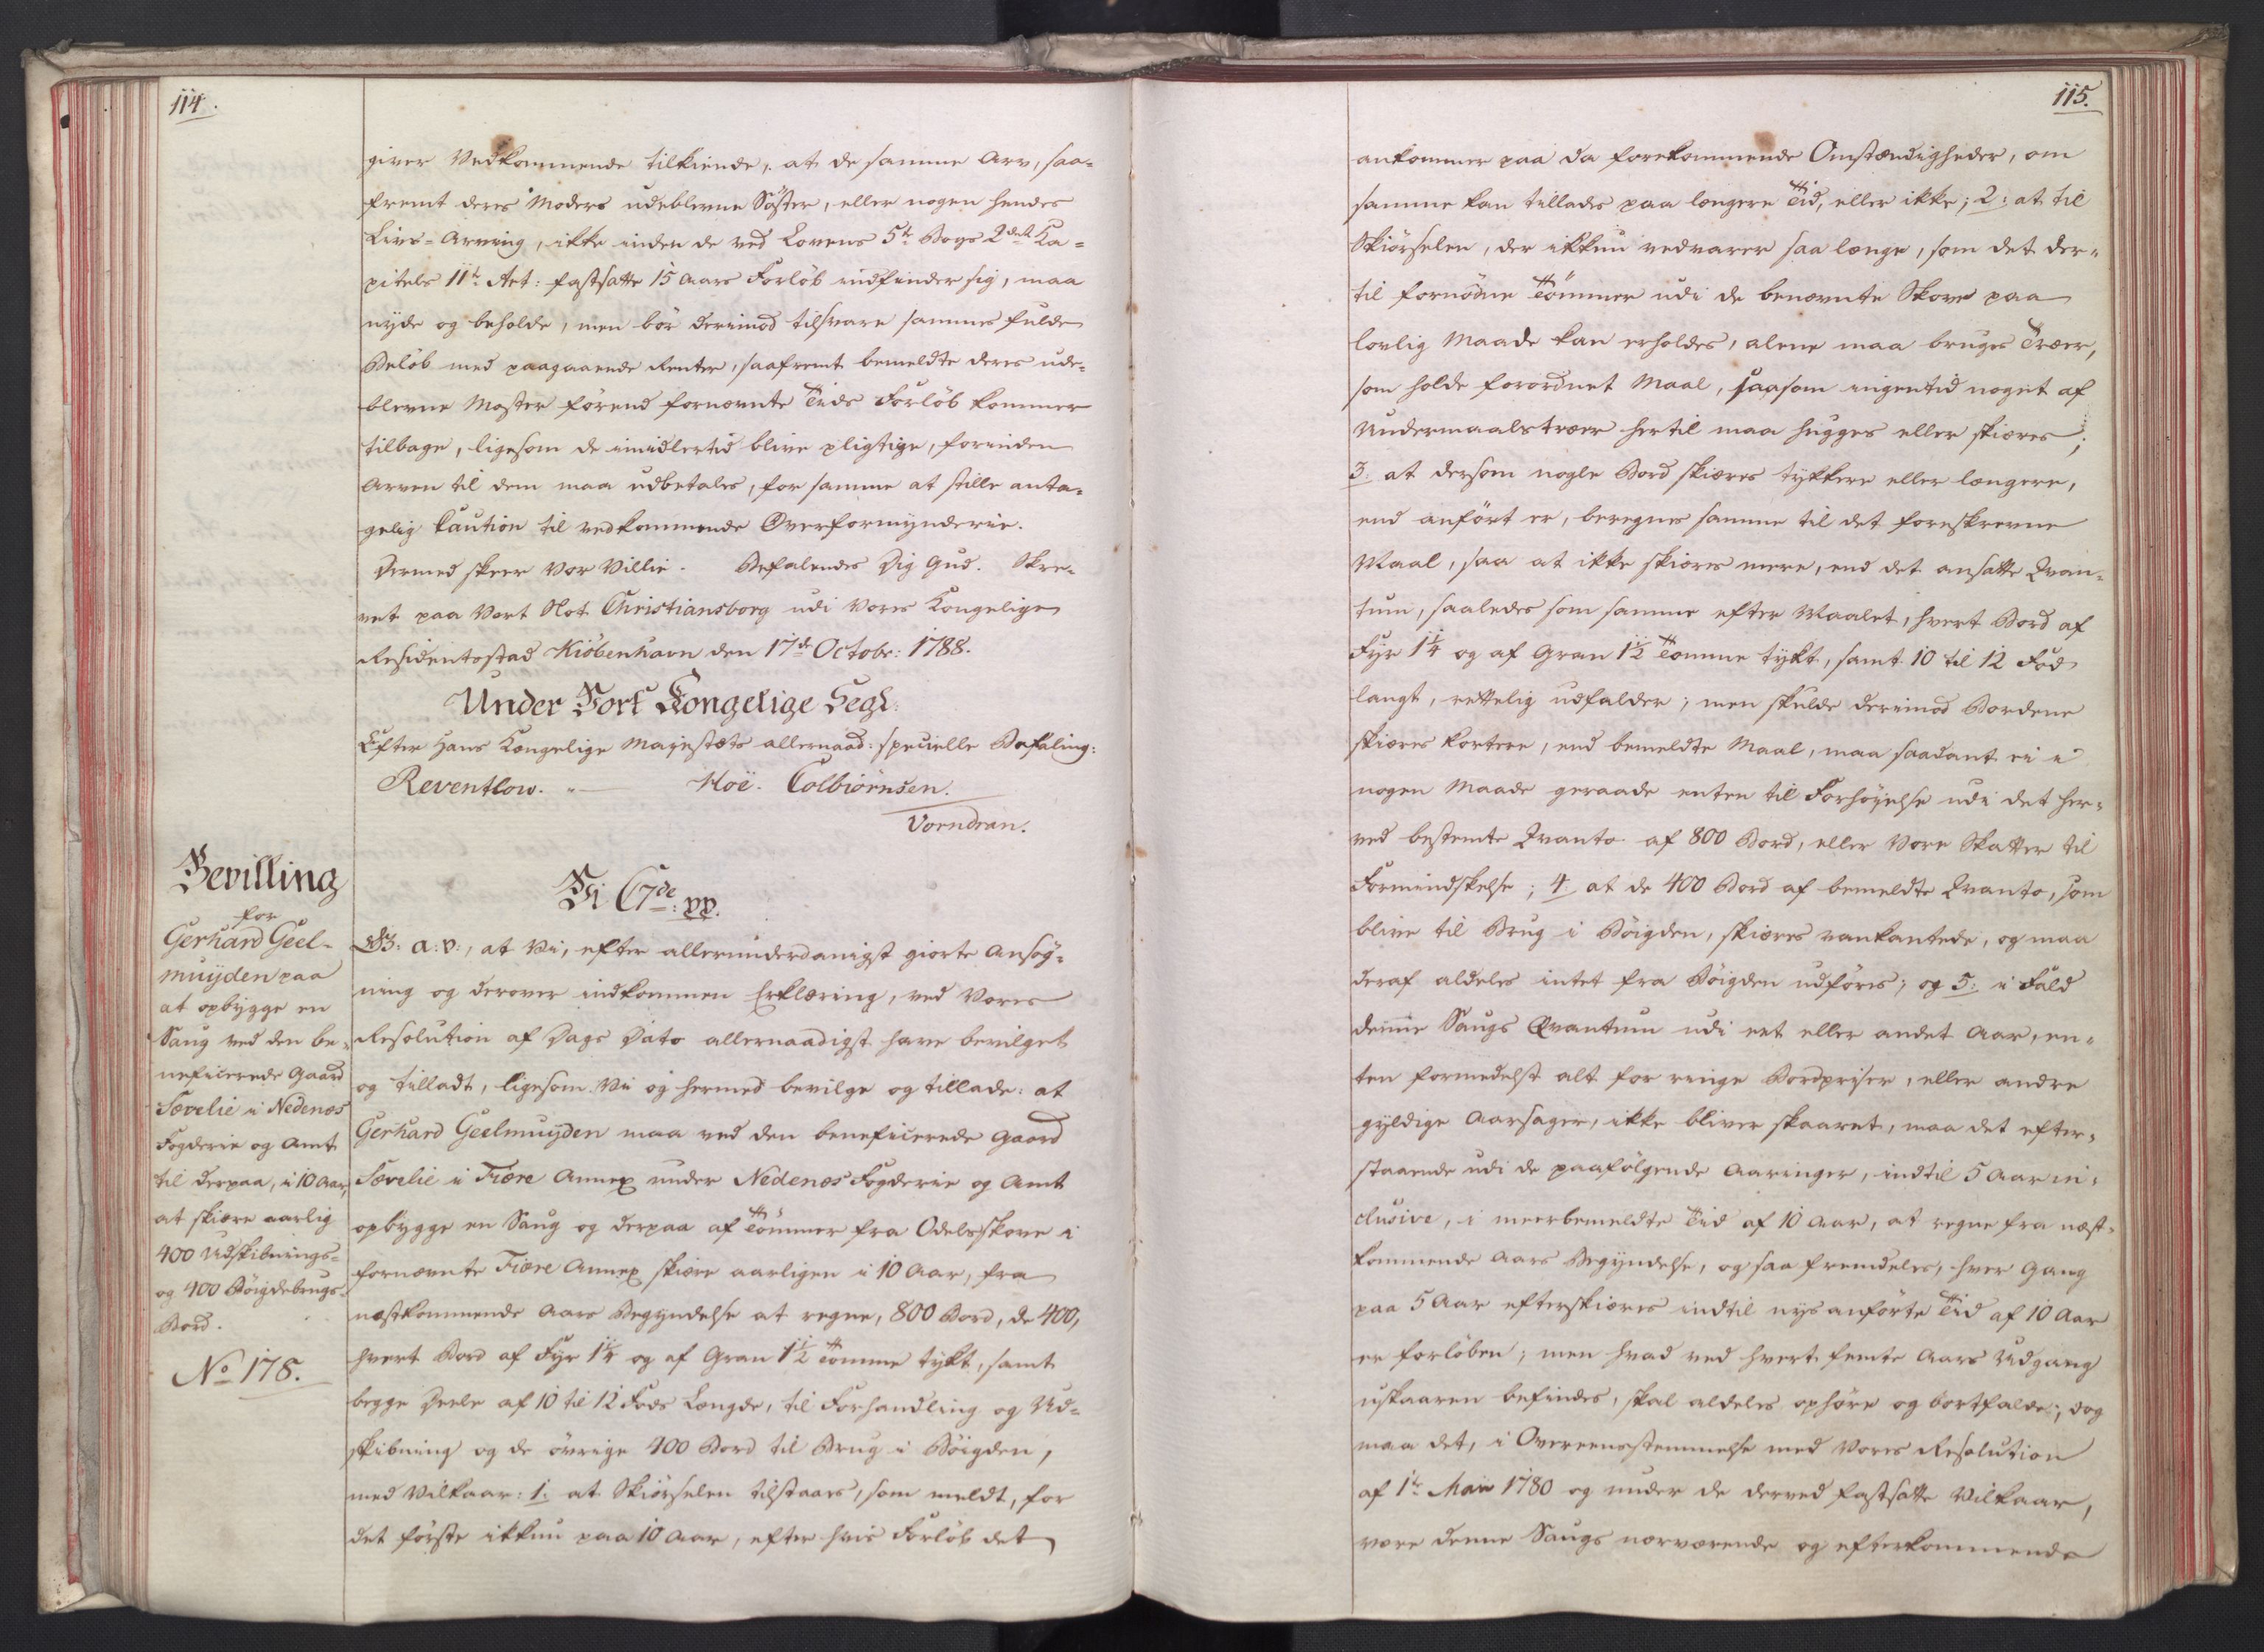 114.
giver Vedkommende tilkiende, at de samme Arv, saa-
fremt deres Moders udeblevne Søster, eller nogen hendes
Livs-Arving, ikke inden de ved Lovens 5te Bogs 2det Ka-
pitels 11te Art: fastsatte 15 Aars Forløb indfinder sig, maa
nyde og beholde, men bør derimod tilsvare sammes fulde
Beløb med paagaaende Renter, saafremt bemeldte deres ude-
blevne Moster førend fornævnte Tiids Forløb kommer
tilbage, ligesom de imidlertid blive pligtige, forinden
Arven til dem maa udbetales, for samme at stille anta-
gelig Caution til vedkommende Overformynderie.
Dermed skeer Vor Villie. Befalendes Dig Gud. Skre-
vet paa Vort Slot Christiansborg udi Vores Kongelige
Residentsstad Kiøbenhavn den 17de Octobr: 1788.
Under Vort Kongelige Segl.
Efter Hans Kongelige Majestæts allernaad: specielle Befaling:
Reventlow. Moe. Colbiørnsen.
Vorndran.
Bevilling
for
Gerhard Geel-
muyden paa
at opbygge en
Saug ved den be-
neficerede Gaard
Sævelie i Nedenæs
Fogderie og Amt
til derpaa, i 10 Aar,
at skiære aarlig
400 Udskibnings-
og 400 Bøigdebrugs-
Bord.
No 178.
Vi C7de: pp.
G: A: V:, at Vi, efter allerunderdanigst giorte Ansøg-
ning og derover indkommen Erklæring, ved Vores
Resolution af Dags Dato allernaadigst have bevilget
og tilladt, ligesom Vi og hermed bevilge og tillade: at
Gerhard Geelmuyden maa ved den beneficerede Gaard
Sævelie i Fiære Annex under Nedenæs Fogderie og Amt
opbygge en Saug og derpaa af Tømmer fra Odelsskove i
fornævnte Fiære Annex skiære aarligen i 10 Aar, fra
næstkommende Aars Begyndelse at regne, 800 Bord, de 400,
hvert Bord af Fyr 1¼ og af Gran 1½ Tomme tykt, samt
begge Deele af 10 til 12 Fods Længde, til Forhandling og Ud-
skibning og de øvrige 400 Bord til Brug i Bøigden,
med Vilkaar: 1. at Skiørselen tilstaaes, som meldt, for
det første ikkun paa 10 Aar, efter hvis Forløb det
115.
ankommer paa da forekommende Omstændigheder, om
samme kan tillades paa længere Tid, eller ikke; 2: at til
Skiørselen, der ikkun vedvarer saa længe, som det der-
til fornødne Tømmer udi de benævnte Skove paa
lovlig Maade kan erholdes, alene maa bruges Træer,
som holde forordnet Maal, saasom ingentid noget af
Undermaalstræer hertil maa hugges eller skiæres;
3. at dersom nogle Bord skiæres tykkere eller længere,
end anført er, beregnes samme til det foreskrevne
Maal, saa at ikke skiæres mere, end det ansatte Qvan-
tum, saaledes som samme efter Maalet, hvert Bord af
Fyr 1¼ og af Gran 1½ Tomme tykt, samt 10 til 12 Fod
langt, rettelig udfalder; men skulde derimod Bordene
skiæres kortere, end bemeldte Maal, maa saadant ei i
nogen Maade geraade enten til Forhøyelse udi det her-
ved bestemte Qvanto af 800 Bord, eller Vore Skatter til
Formindskelse; 4. at de 400 Bord af bemeldte Qvanto, som
blive til Brug i Bøigden, skiæres vankantede, og maa
deraf aldeles intet fra Bøigden udføres; og 5: i Fald
denne Saugs Qvantum udi eet eller andet Aar, en-
ten formedelst alt for ringe Bordpriser, eller andre
gyldige Aarsager, ikke bliver skaaret, maa det efter-
staaende udi de paafølgende Aaringer, indtil 5 Aar in-
clusive, i meerbemeldte Tid af 10 Aar, at regne fra næst-
kommende Aars Begyndelse, og saa fremdeles, hver Gang
paa 5 Aar efterskiæres indtil nys anførte Tid af 10 Aar
er forløben; men hvad ved hvert femte Aars Udgang
uskaaren befindes, skal aldeles ophøre og bortfalde; dog
maa det, i Overeensstemmelse med Vores Resolution
af 1te Maii 1780 og under de derved fastsatte Vilkaar,
være denne Saugs nærværende og efterkommende